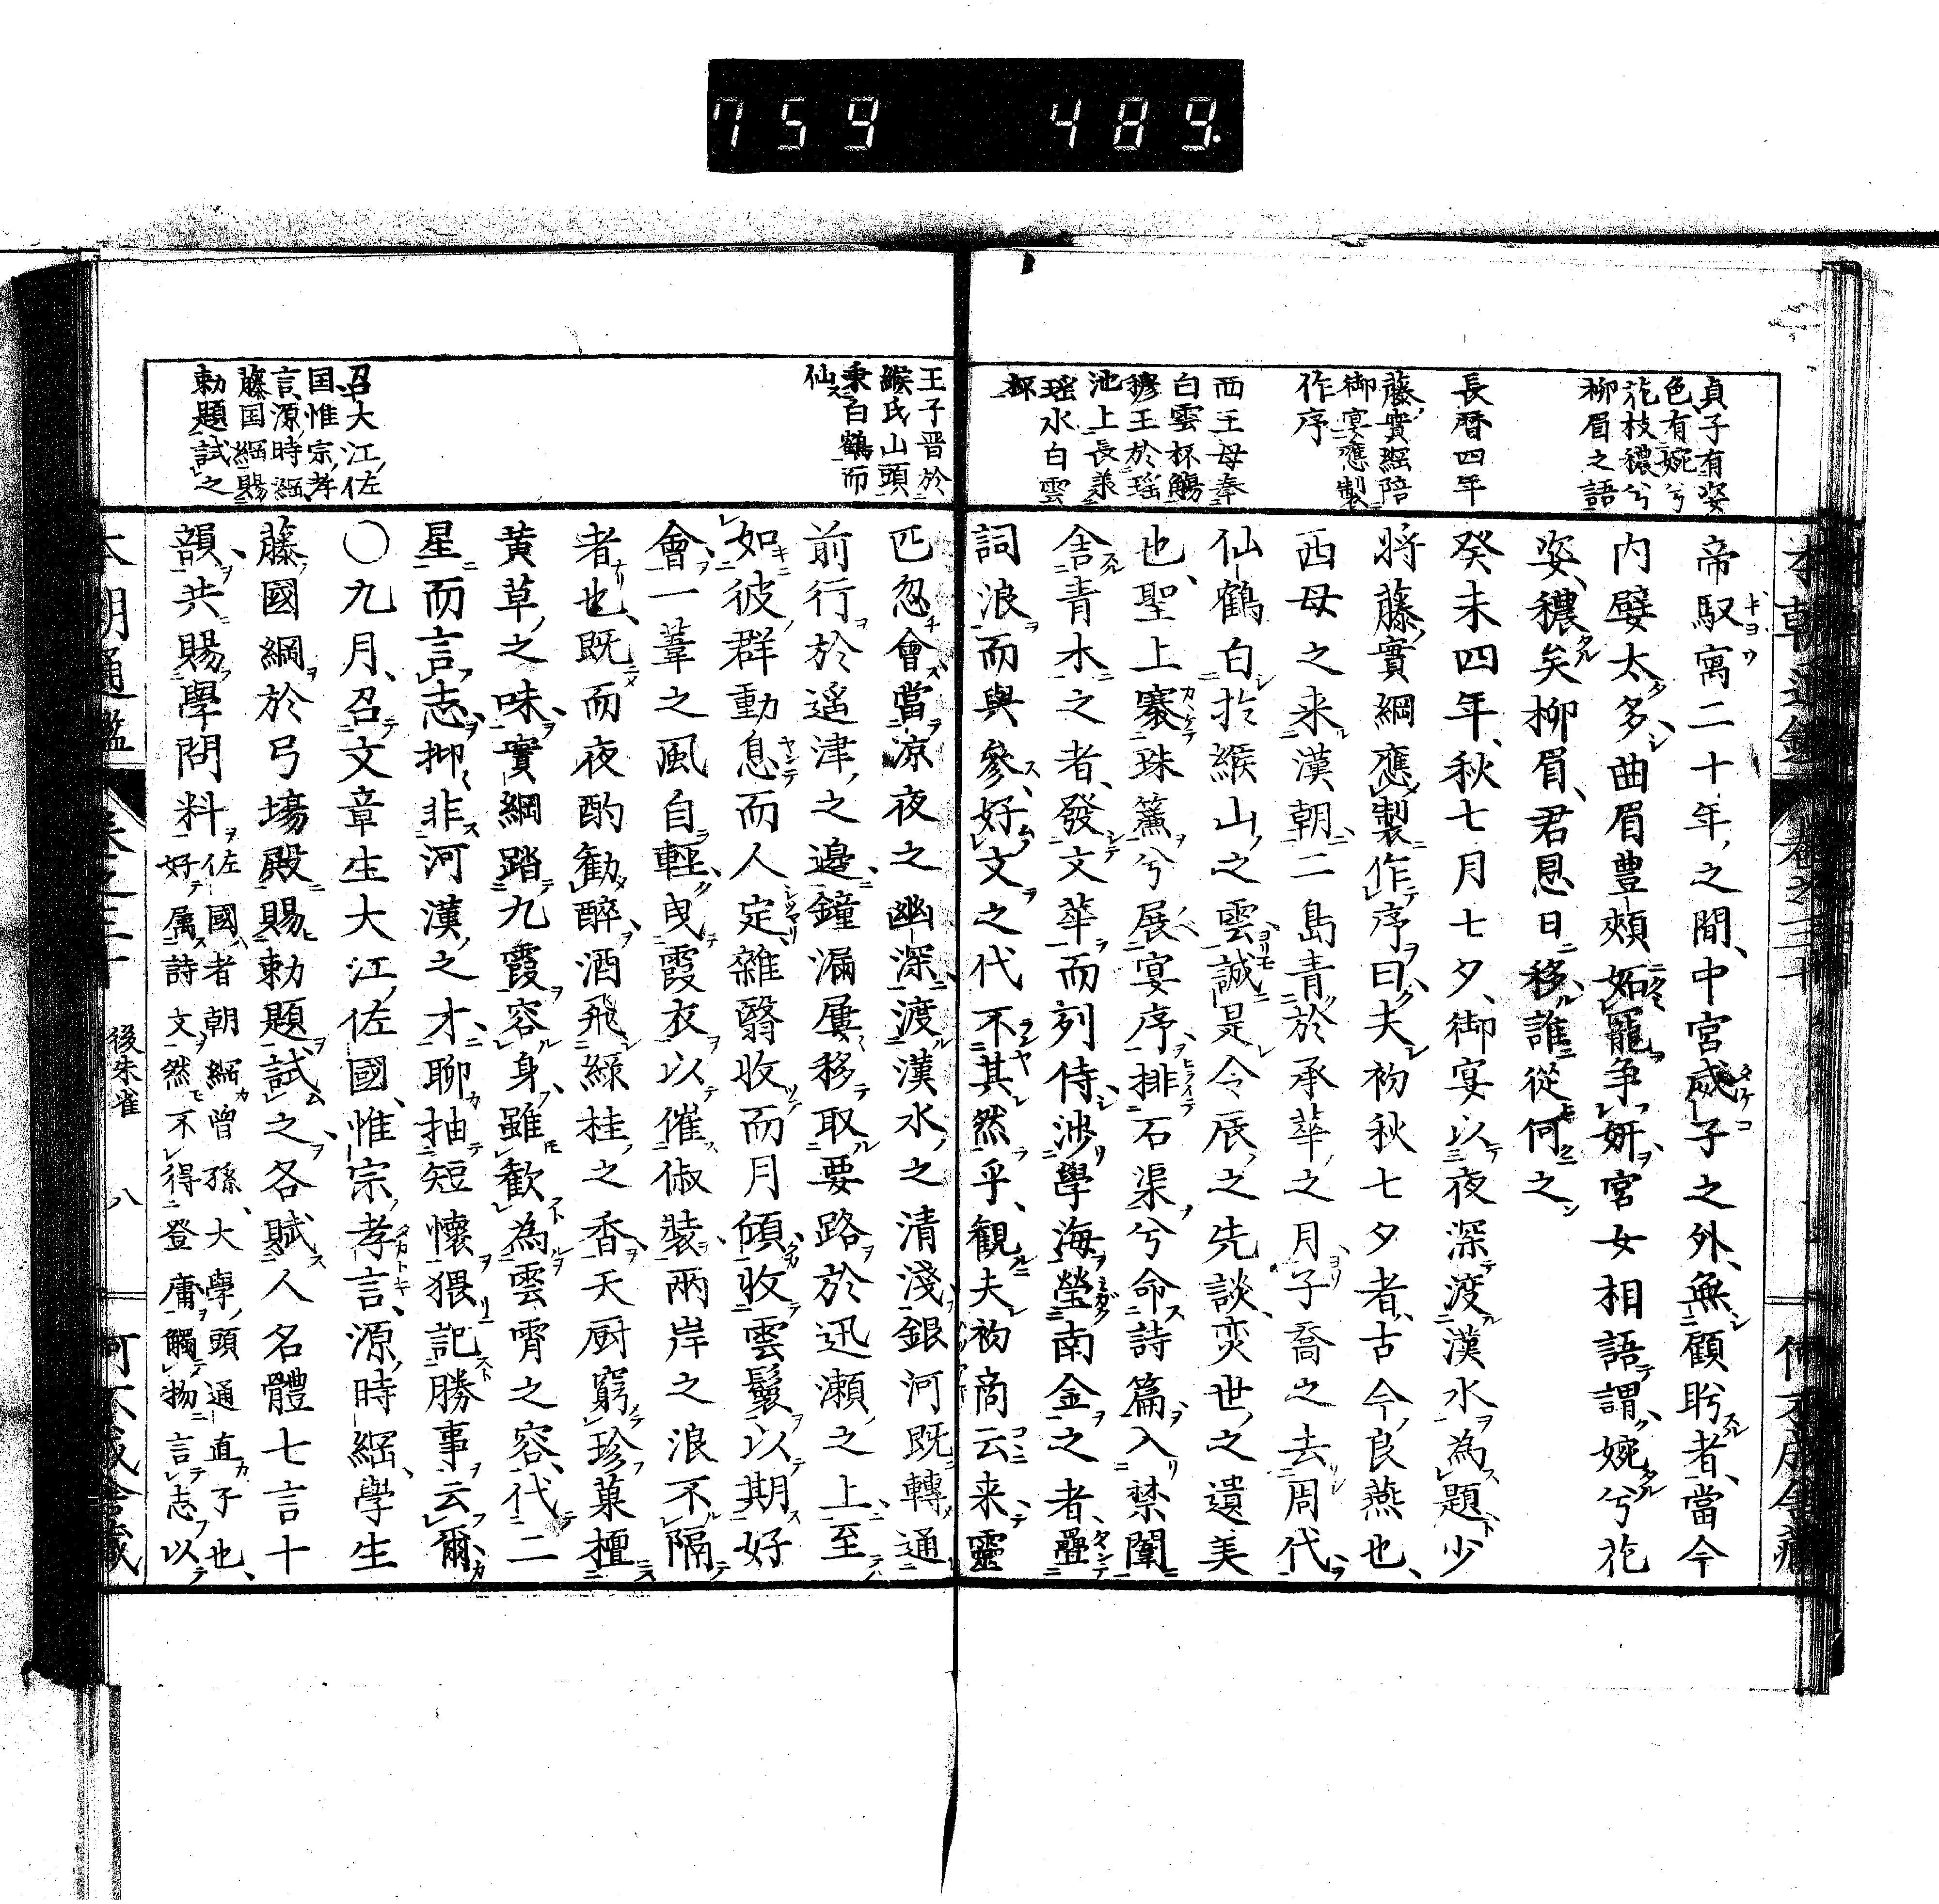 759 489.
貞子有姿
色有婉兮
花枝穠兮
柳眉之語
長暦四年
藤實綱陪
御宴應製
作序
西王母奉
白雲杯觴
穆王於瑤
池上長羕
瑶水白雲
杯
帝馭寓二十年之間中宮威子之外無顧眄者當今
内嬖太多曲眉豊頰妬寵争妍宮女相語謂婉兮花
姿穠矣柳眉君恩日移誰從何之
癸未四年秋七月七夕御宴以夜深渡漢水為題少
将藤實綱應製作序曰夫初秋七夕者古今良燕也
西母之来漢朝二島青於承華之月子喬之去周代
仙鶴白於緱山之雲誠是令辰之先談奕世之遺美
也聖上褰珠簾兮展宴序排石渠兮命詩篇入禁闈
舎青木之者發文華而列侍渉學海瑩南金之者疊
詞浪而與參好文之代不其然乎観夫初商云来靈
王子晋於
緱氏山頭
乗白鶴而
仙
召大江佐
国惟宗孝
言源時綱
藤国綱賜
勅題試之
匹忽會當凉夜之幽深渡漢水之清淺銀河既轉通
前行於遥津之邊鐘漏屢移取要路於迅瀬之上至
如彼群動息而人定雜翳收而月傾收雲鬟以期好
會一葦之風自軽曳霞衣以催俶装兩岸之浪不隔
者也既而夜酌勧醉酒飛緑桂之香天厨窮珍菓檀
黄草之味實綱踏九霞容身雖歓為雲霄之容代二
星而言志抑非河漢之才聊抽短懐猥記勝事云爾
〇九月召文章生大江佐國惟宗孝言源時綱學生
藤國綱於弓場殿賜勅題試之各賦人名體七言十
韻共賜學問料佐國者朝綱曽孫大學頭通直子也
好属詩文然不得登庸觸物言志以
本朝通鑑 卷之三十 後朱雀 八